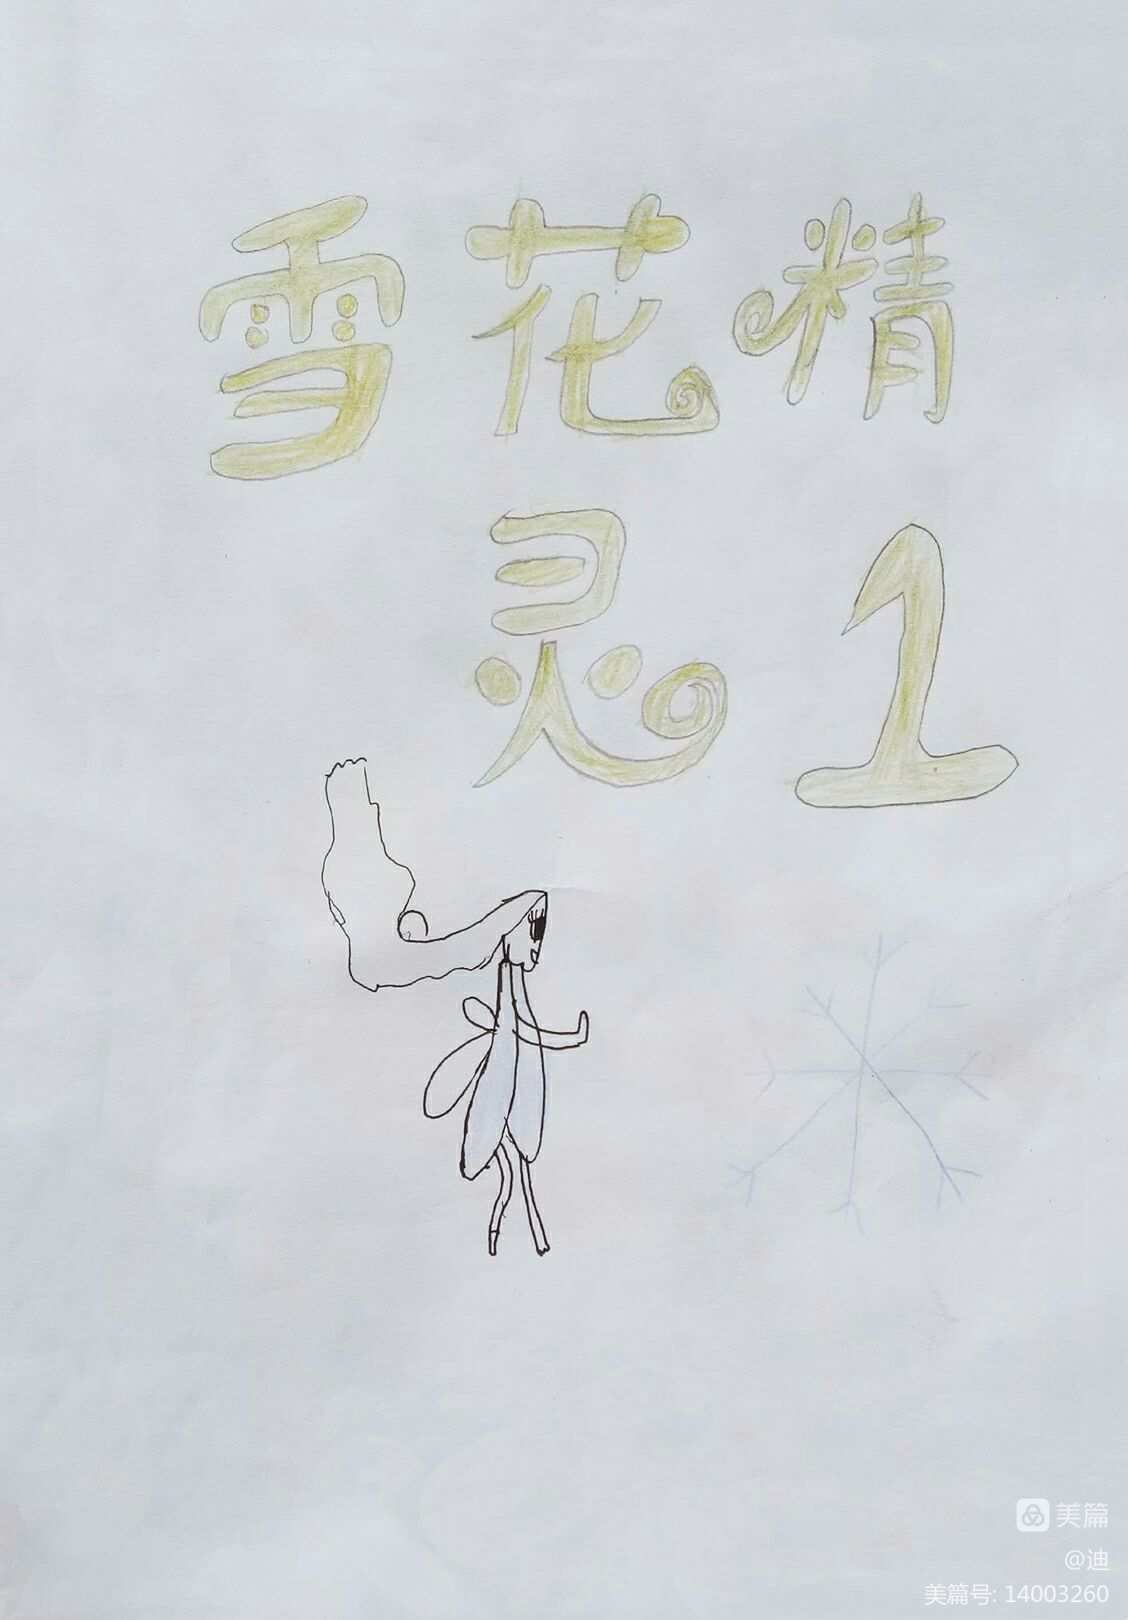 雪花精
灵1
美篇
@迪
美篇号: 14003260